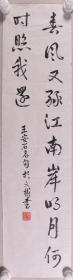 春风又绿江南岸明月何
时照我還
王安石名句